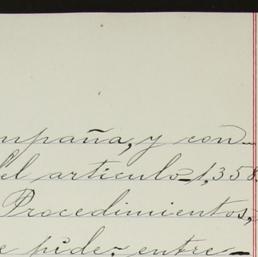 mpaña, y con-
del articulo 1,358
Procedimientos,
e pide: entre-